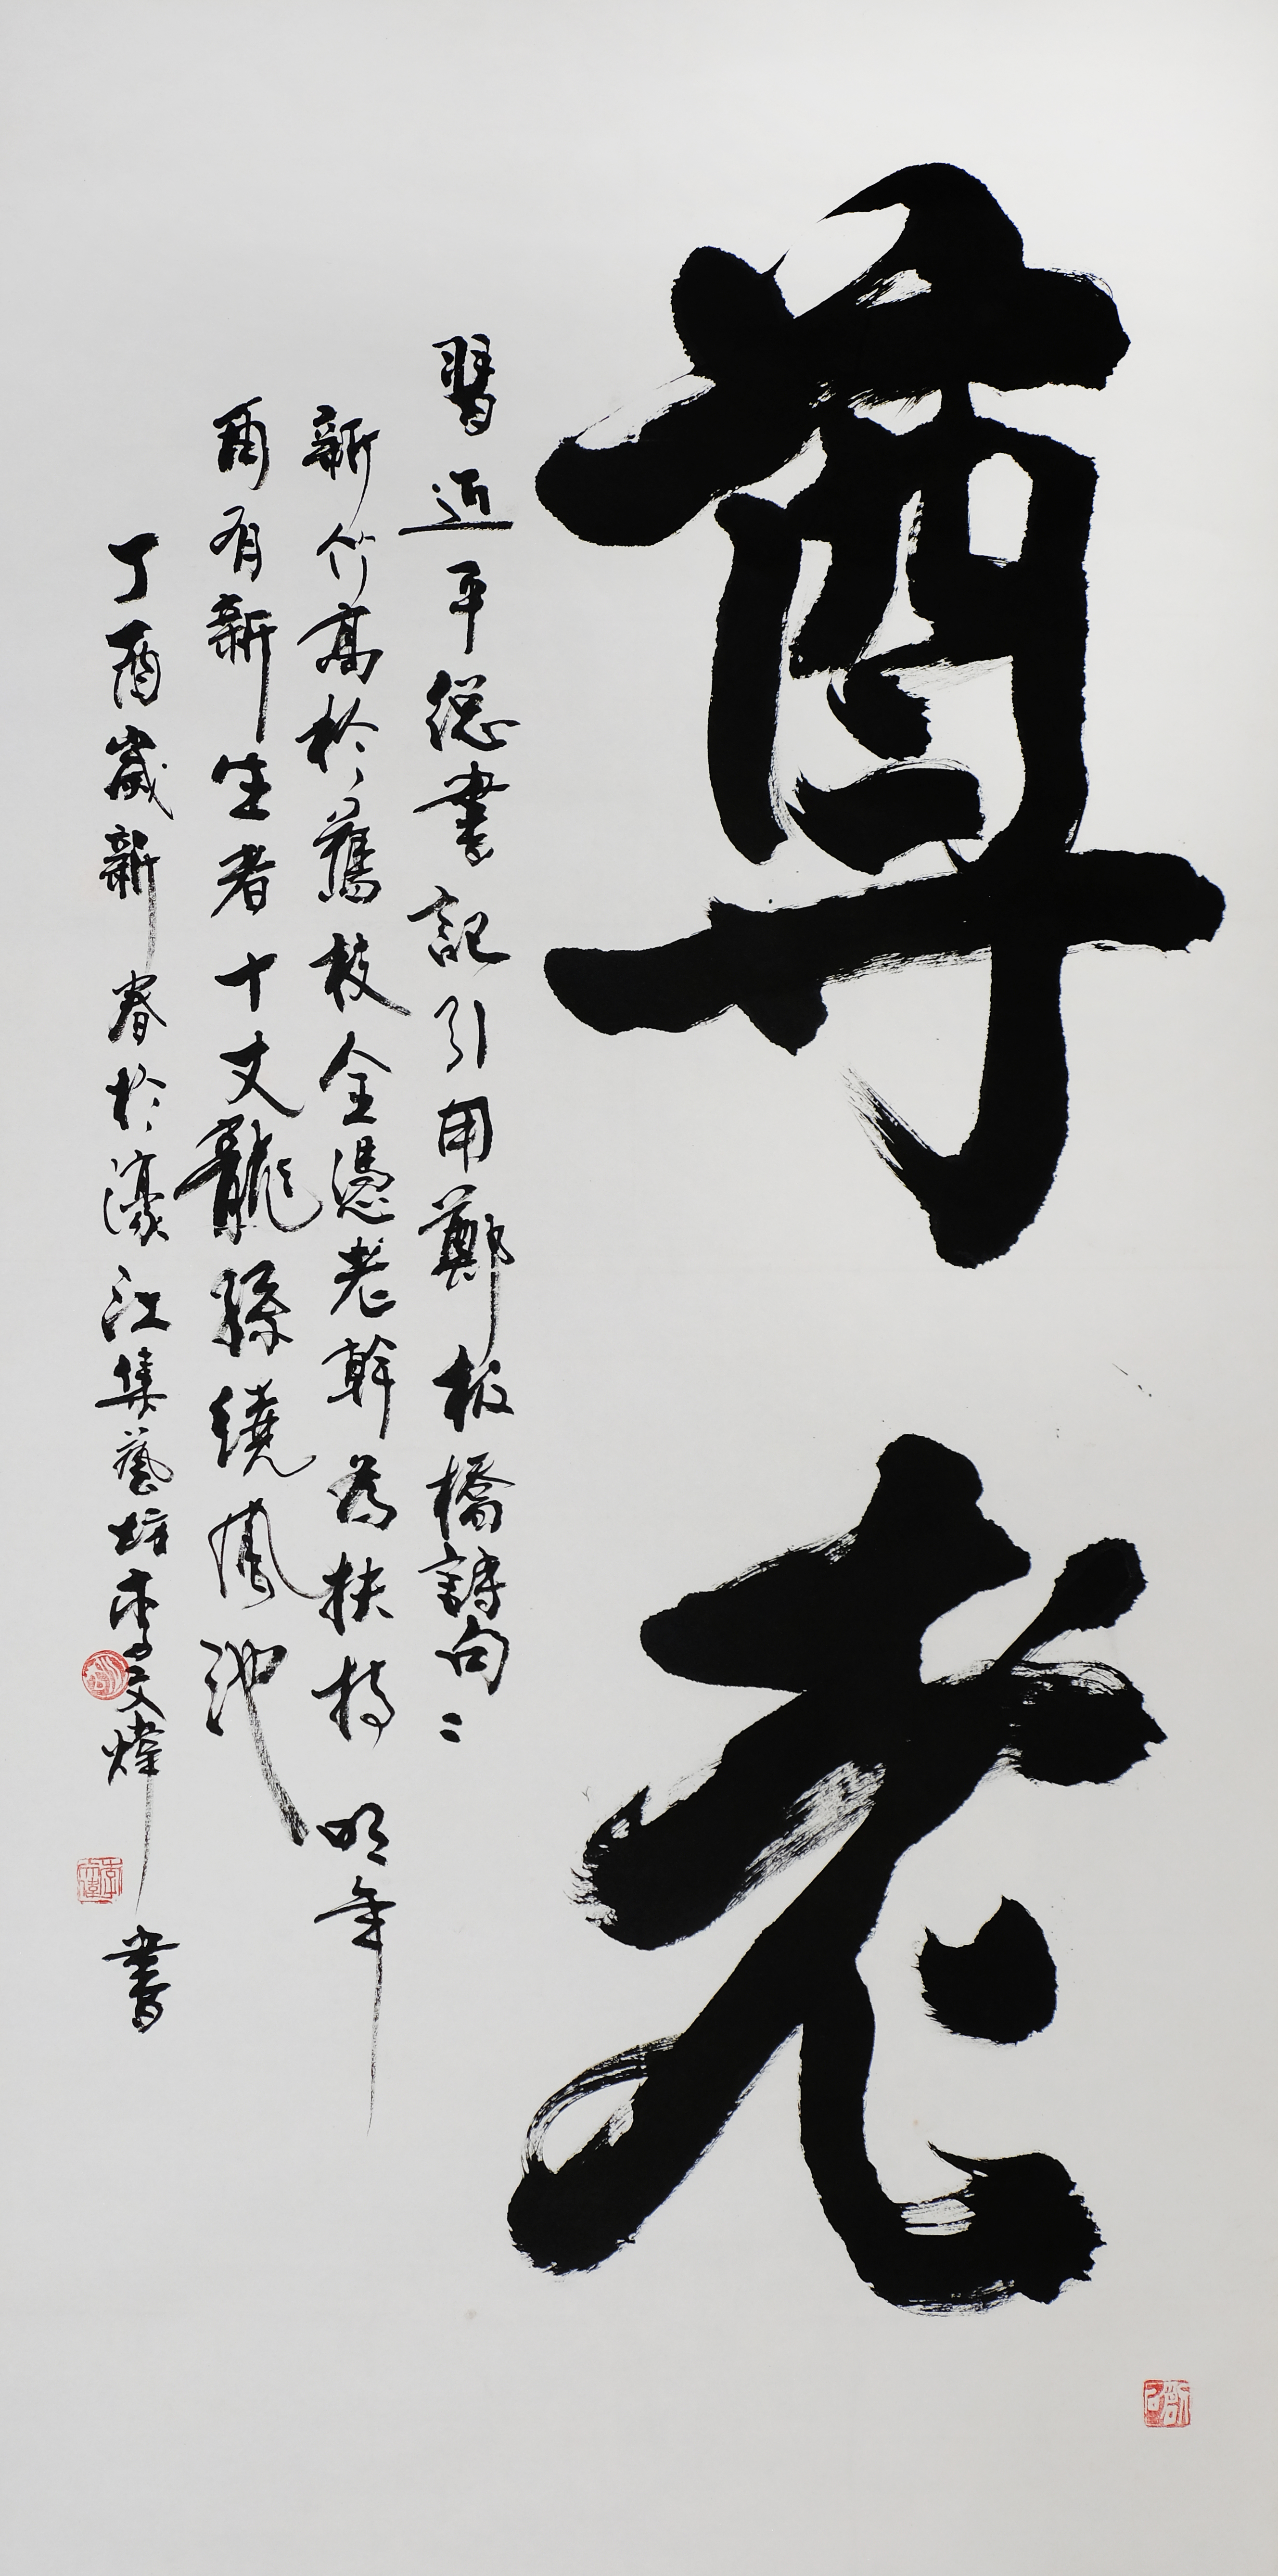 尊老
習近平總書記引用鄭板橋詩句二
新竹高於舊枝全憑老幹為扶持 明年
再有新生者十丈龍孫繞鳳池
丁酉歲新春於濠江集藝坊李文煒書